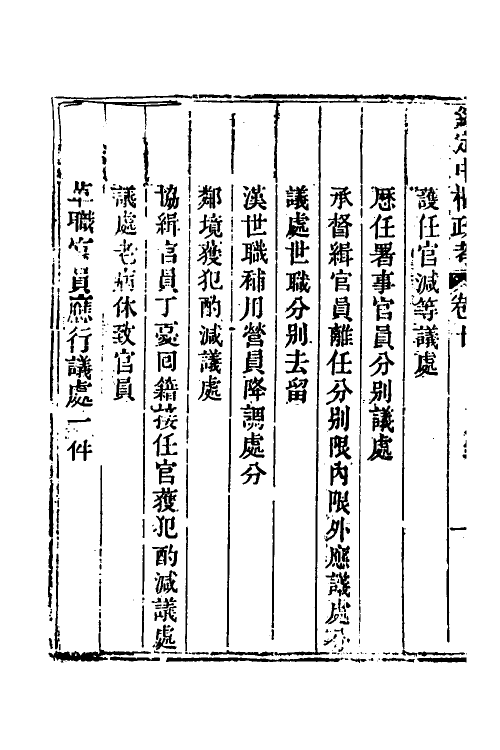 欽定中樞政考卷十
護任官減等議處
歷任署事官員分別議處
承督緝官員離任分別限內限外應議處分
議處世職分別去留
漢世職補用營員降調處分
鄰境獲犯酌減議處
協緝官員丁憂回籍接任官獲犯酌減議處
議處老病休致官員
革職官員應行議處一件